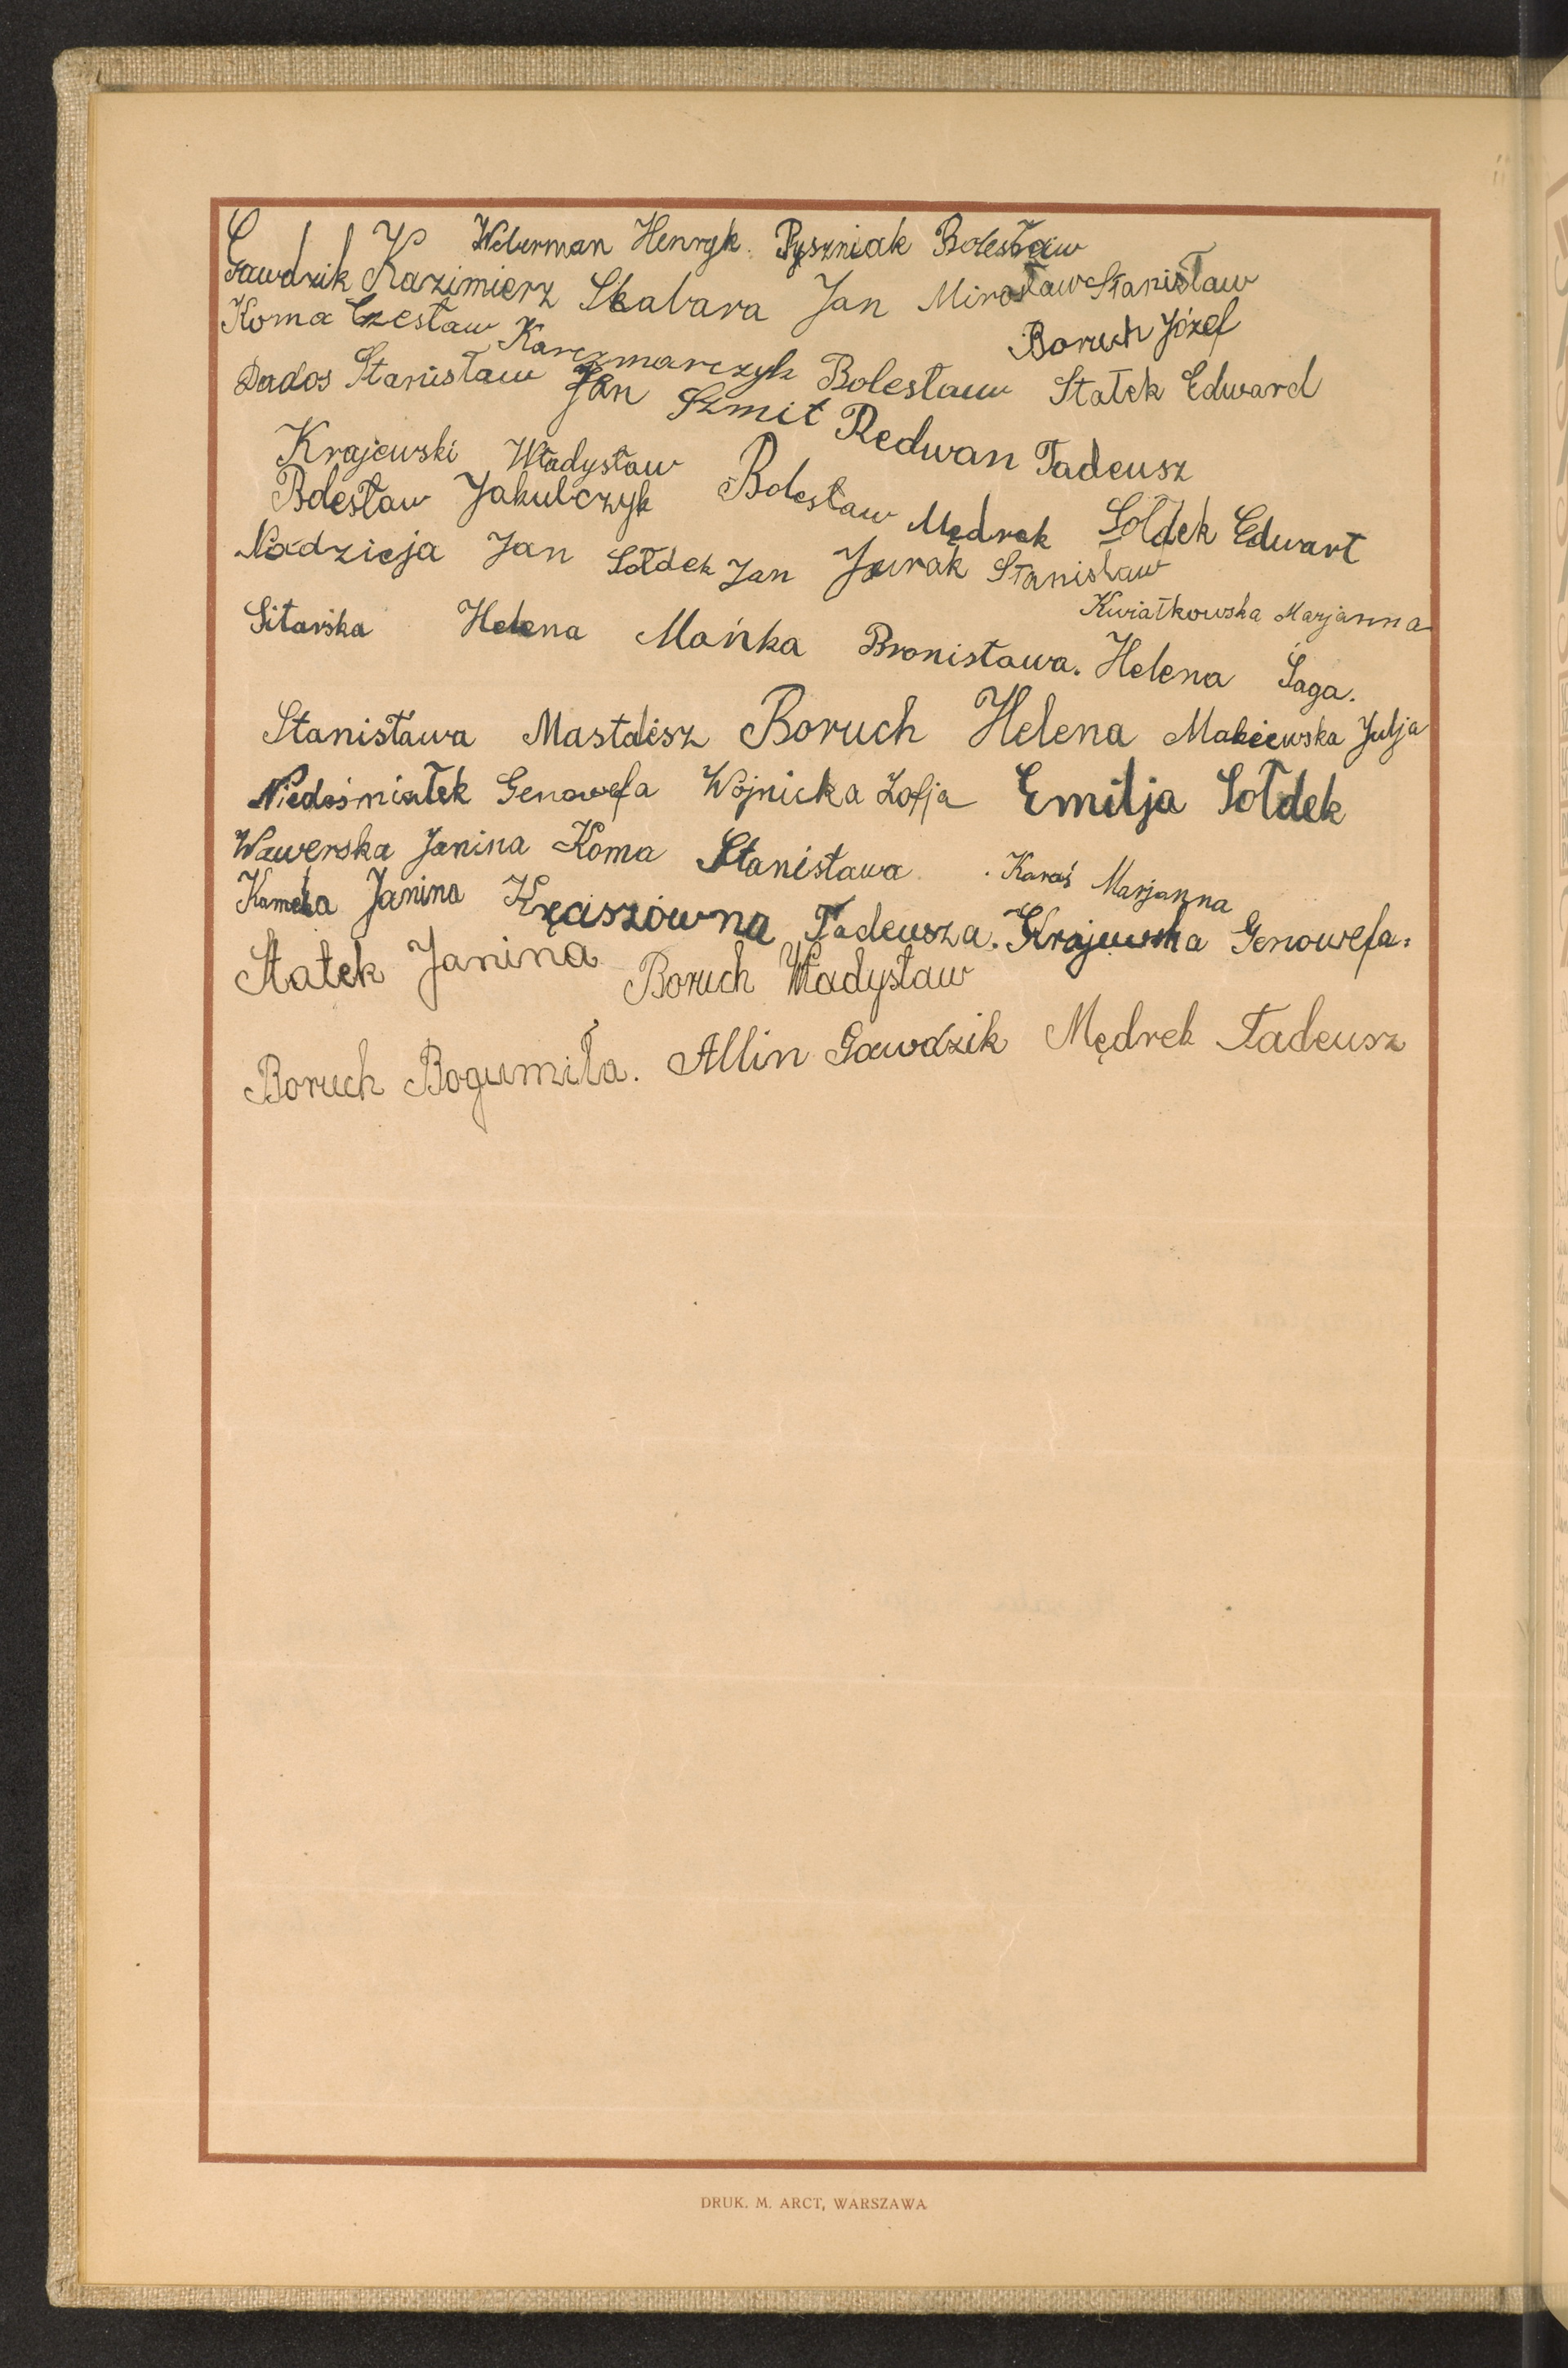 Weberman Henryk. Pyszniak Bolesław
Gawdzik Kazimierz Skabara Jan Mirosław Stanisław
Koma Czesław Karczmarczyk Bolesław Boruch Józef
Dados Stanisław Jan Szmit Statek Edward
Krajewski Władysław Redwan Tadeusz
Bolesław Jakubczyk Bolesław Mędrek Sołdek Edwart
Nadzieja Jan Sołdek Jan Jurak Stanisław
Kwiatkowska Marjanna
Sitarska Helena Mańka Bronisława. Helena Saga.
Stanisława Mastalesz Boruch Helena Makiewska Julja
Niedośmiałek Genowefa Wójnicka Zofja Emilja Sołdek
Wawerska Janina Koma Stanisława. Karaś Marjanna
Kamela Janina Kręciszówna Tadeusza. Krajewska Genowefa.
Statek Janina Boruch Władysław
Boruch Bogumiła. Albin Gawdzik Mędrek Tadeusz
DRUK. M. ARCT, WARSZAWA